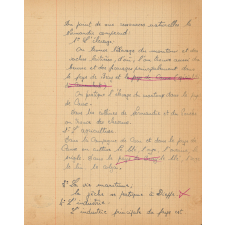 Au point de vue ressources naturelles la
Normandie comprend:
1° L'élevage
On trouve l'élevage du
vaches laitières, d'où, l'on trouve aussi des
beurres et des fromages principalement dans
le pays de Bray et le pays de
On pratique l'élevage du mouton dans le pays
de Caux.
Dans les collines de Normandie et du Perche
on trouve des chevaux.
2° L'agriculture
Dans la Campagne de Caen et dans le pays de
Caux on cultive le blé, l'orge, l'avoine, le
seigle. Dans le le blé, l'orge
le lin, le colza.
3° La vie maritime.
La pêche se pratique à Dieppe
4° L'industrie.
L'industrie principale du pays est